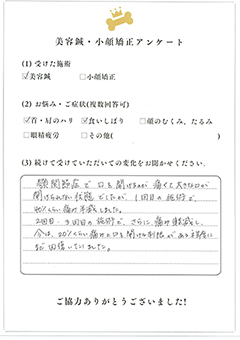 美容鍼・小顔矯正アンケート
(1) 受けた施術
☑美容鍼 □小顔矯正
(2) お悩み・ご症状(複数回答可)
☑首・肩のハリ ☑食いしばり □顔のむくみ、たるみ
□眼精疲労 □その他( )
(3) 続けて受けていただいての変化をお聞かせください。
顎関節症で口を開けるのが痛くて大きな口が
開けられない状態でしたが、1回目の施術で、
痛みが半減しました。
2回目・3回目の施術で、さらに痛みが軽減し、
今は、20%くらい痛みと口を開ける制限がある程度に
まで回復していました。
ご協力ありがとうございました!